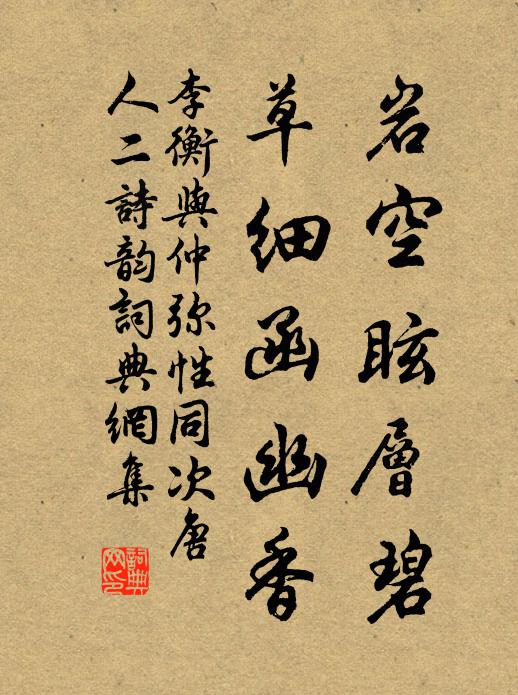 岩空眩層碧
草细函幽香
李衡與仲弥性同次唐
人二詩韵詞典網集
詞典
网印